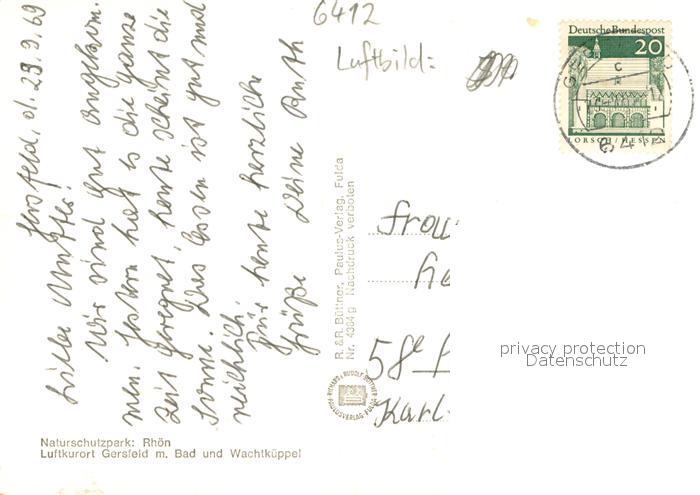 6412
Luftbild:
Deutsche Bundespost
20
LORSCH/HESSEN
Gersfeld, d. 29.9.69
Liebe Mutter!
Wir sind gut angekom-
men. Gestern hat es die ganze
Zeit geregnet, heute scheint die
Sonne. Das Essen ist gut und
reichlich.
Für heute herzliche
Grüße Deine Ruth
R. &R. Büttner, Paulus-Verlag, Fulda
Nr. 4364 g Nachdruck verboten
RICHARD & RUDOLF BÜTTNER
PAULUSVERLAG FULDA
Frau
58
Karl
privacy protection
Datenschutz
Naturschutzpark: Rhön
Luftkurort Gersfeld m. Bad und Wachtküppel